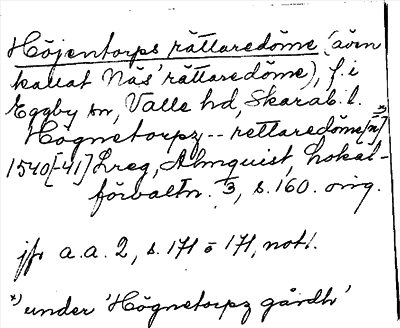 Höjentorps rättaredöme (även
kallat Näs' rättaredöme), f. i
Eggby sn, Valle hd, Skarab. l.
Högnetorpz -- rettaredöme[n]*)
1540[-41] Lreg, Almquist, Lokal-
förvaltn. 3, s. 160. orig.
jfr a.a. 2, s. 171 o 171, not 1.
*) under 'Högnetorpz gårdh'